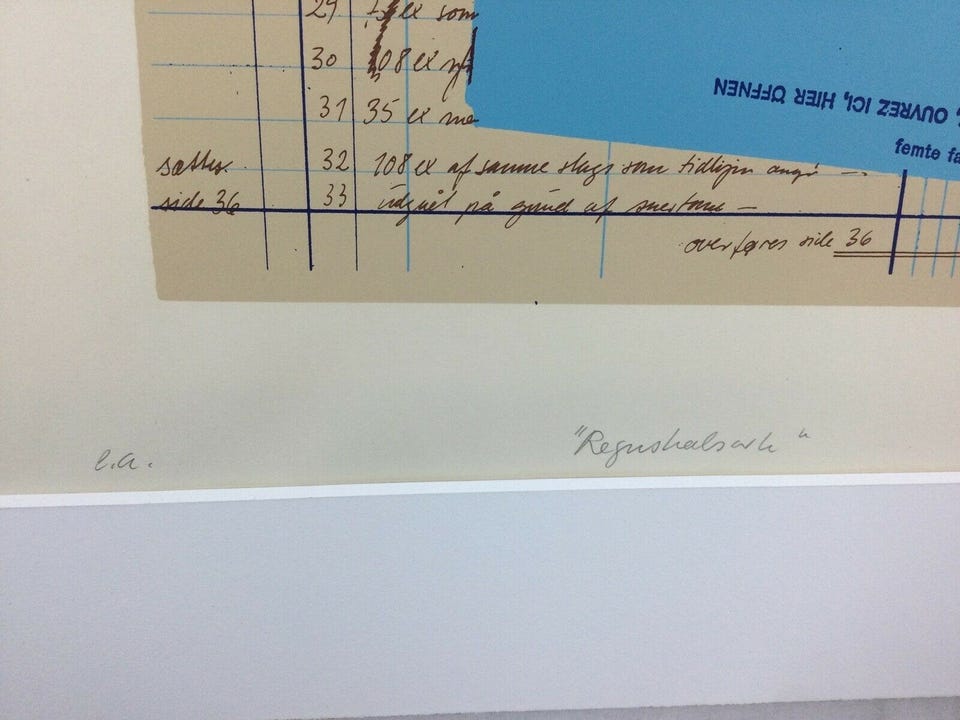 29 ex som
30 108 ex
31 35 ex me
NEJ, OUVREZ ICI, HIER ÖFFNEN
femte fa
sættes 32 108 ex af samme slags som tidligere
side 36 33 udgået på grund af
overføres side 36
e.a. "Regnskabsark"